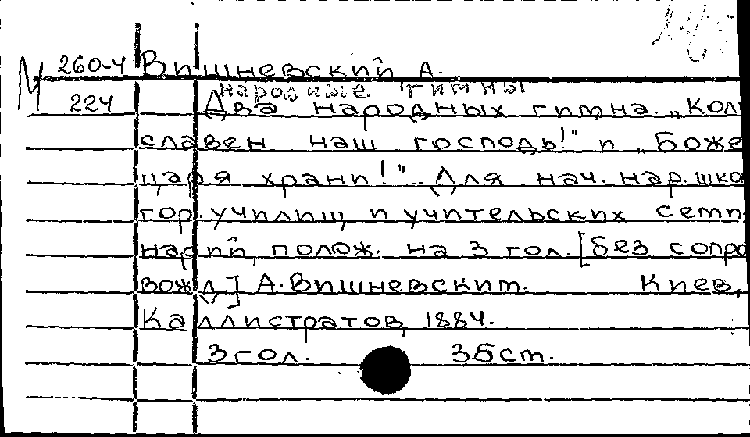 М 260-4 Вишневский А.
народные гимны
224 Два народных гимна „Кол
славен наш господь!" и „Боже
царя храни!" Для нач. нар. шко
гор. училищ и учительских семи
нарий, полож. на 3 гол. [без сопро
вожд.] А. Вишневским. Киев,
Каллистратов, 1884.
3 гол. 35 ст.